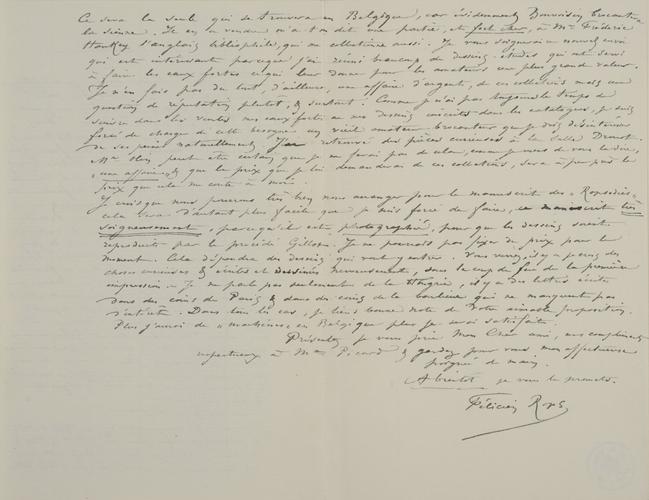 Ce sera la seule qui se trouvera en Belgique, car évidemment Bouvoisin brocantera
la sienne. Il en a vendu m'a t'on dit une partie, et fort cher, à Mr Fréderic
Hankey l'anglais bibliophile, qui me collectionne aussi. Je vous soignerai un nouvel envoi
qui est intéressant parceque j'ai réuni beaucoup de dessins, études qui ont servi
à faire les eaux fortes ce qui leur donne pour les amateurs une plus grande valeur.
Je n'en fais pas du tout, d'ailleurs, une affaire d'argent, de ces collections mais une
question de réputation plutôt, & surtout! Comme je n'ai pas toujours le temps de
suivre dans les ventes mes eaux fortes ou mes dessins inscrits dans les catalogues, je suis
forcé de charger de cette besogne un vieil amateur brocanteur que je dois désintéresser
de ses peines naturellement. J'ai retrouvé des pièces curieuses à la salle Drouot.
Mr Olin peut être certain que je ne ferai pas de cela, comme je viens de vous le dire,
une affaire, & que le prix que je lui demanderai de ces collections, sera à peu près le
prix que cela me coûte à moi.
Je crois que nous pourrons très bien nous arranger pour le manuscrit des « Ropsodies »
cela sera d'autant plus facile que je suis forcé de faire, ce manuscrit très
soigneusement, parcequ'il sera photographié, pour que les dessins soient
reproduits par le procédé Gillot. Je ne pourrais pas fixer de prix pour le
moment. Cela dépendra des dessins qui vont y entrer. Vous verrez, il y a je crois des
choses curieuses & écrites et dessinées nerveusement, sous le coup de feu de la première
impression. Je ne parle pas seulement de la Hongrie, il y a des lettres écrites
dans des coins de Paris & dans des coins de la banlieue qui ne manquent pas
d'intérêt. Dans tous les cas, je tiens bonne note de votre aimable proposition.
Plus j'aurai de « machines » en Belgique plus je serai satisfait.
Présentez je vous prie Mon Cher ami, mes compliments
respectueux à Mme Picard & gardez pour vous mon affectueuse
poignée de main.
A bientôt je vous le promets.
Félicien Rops